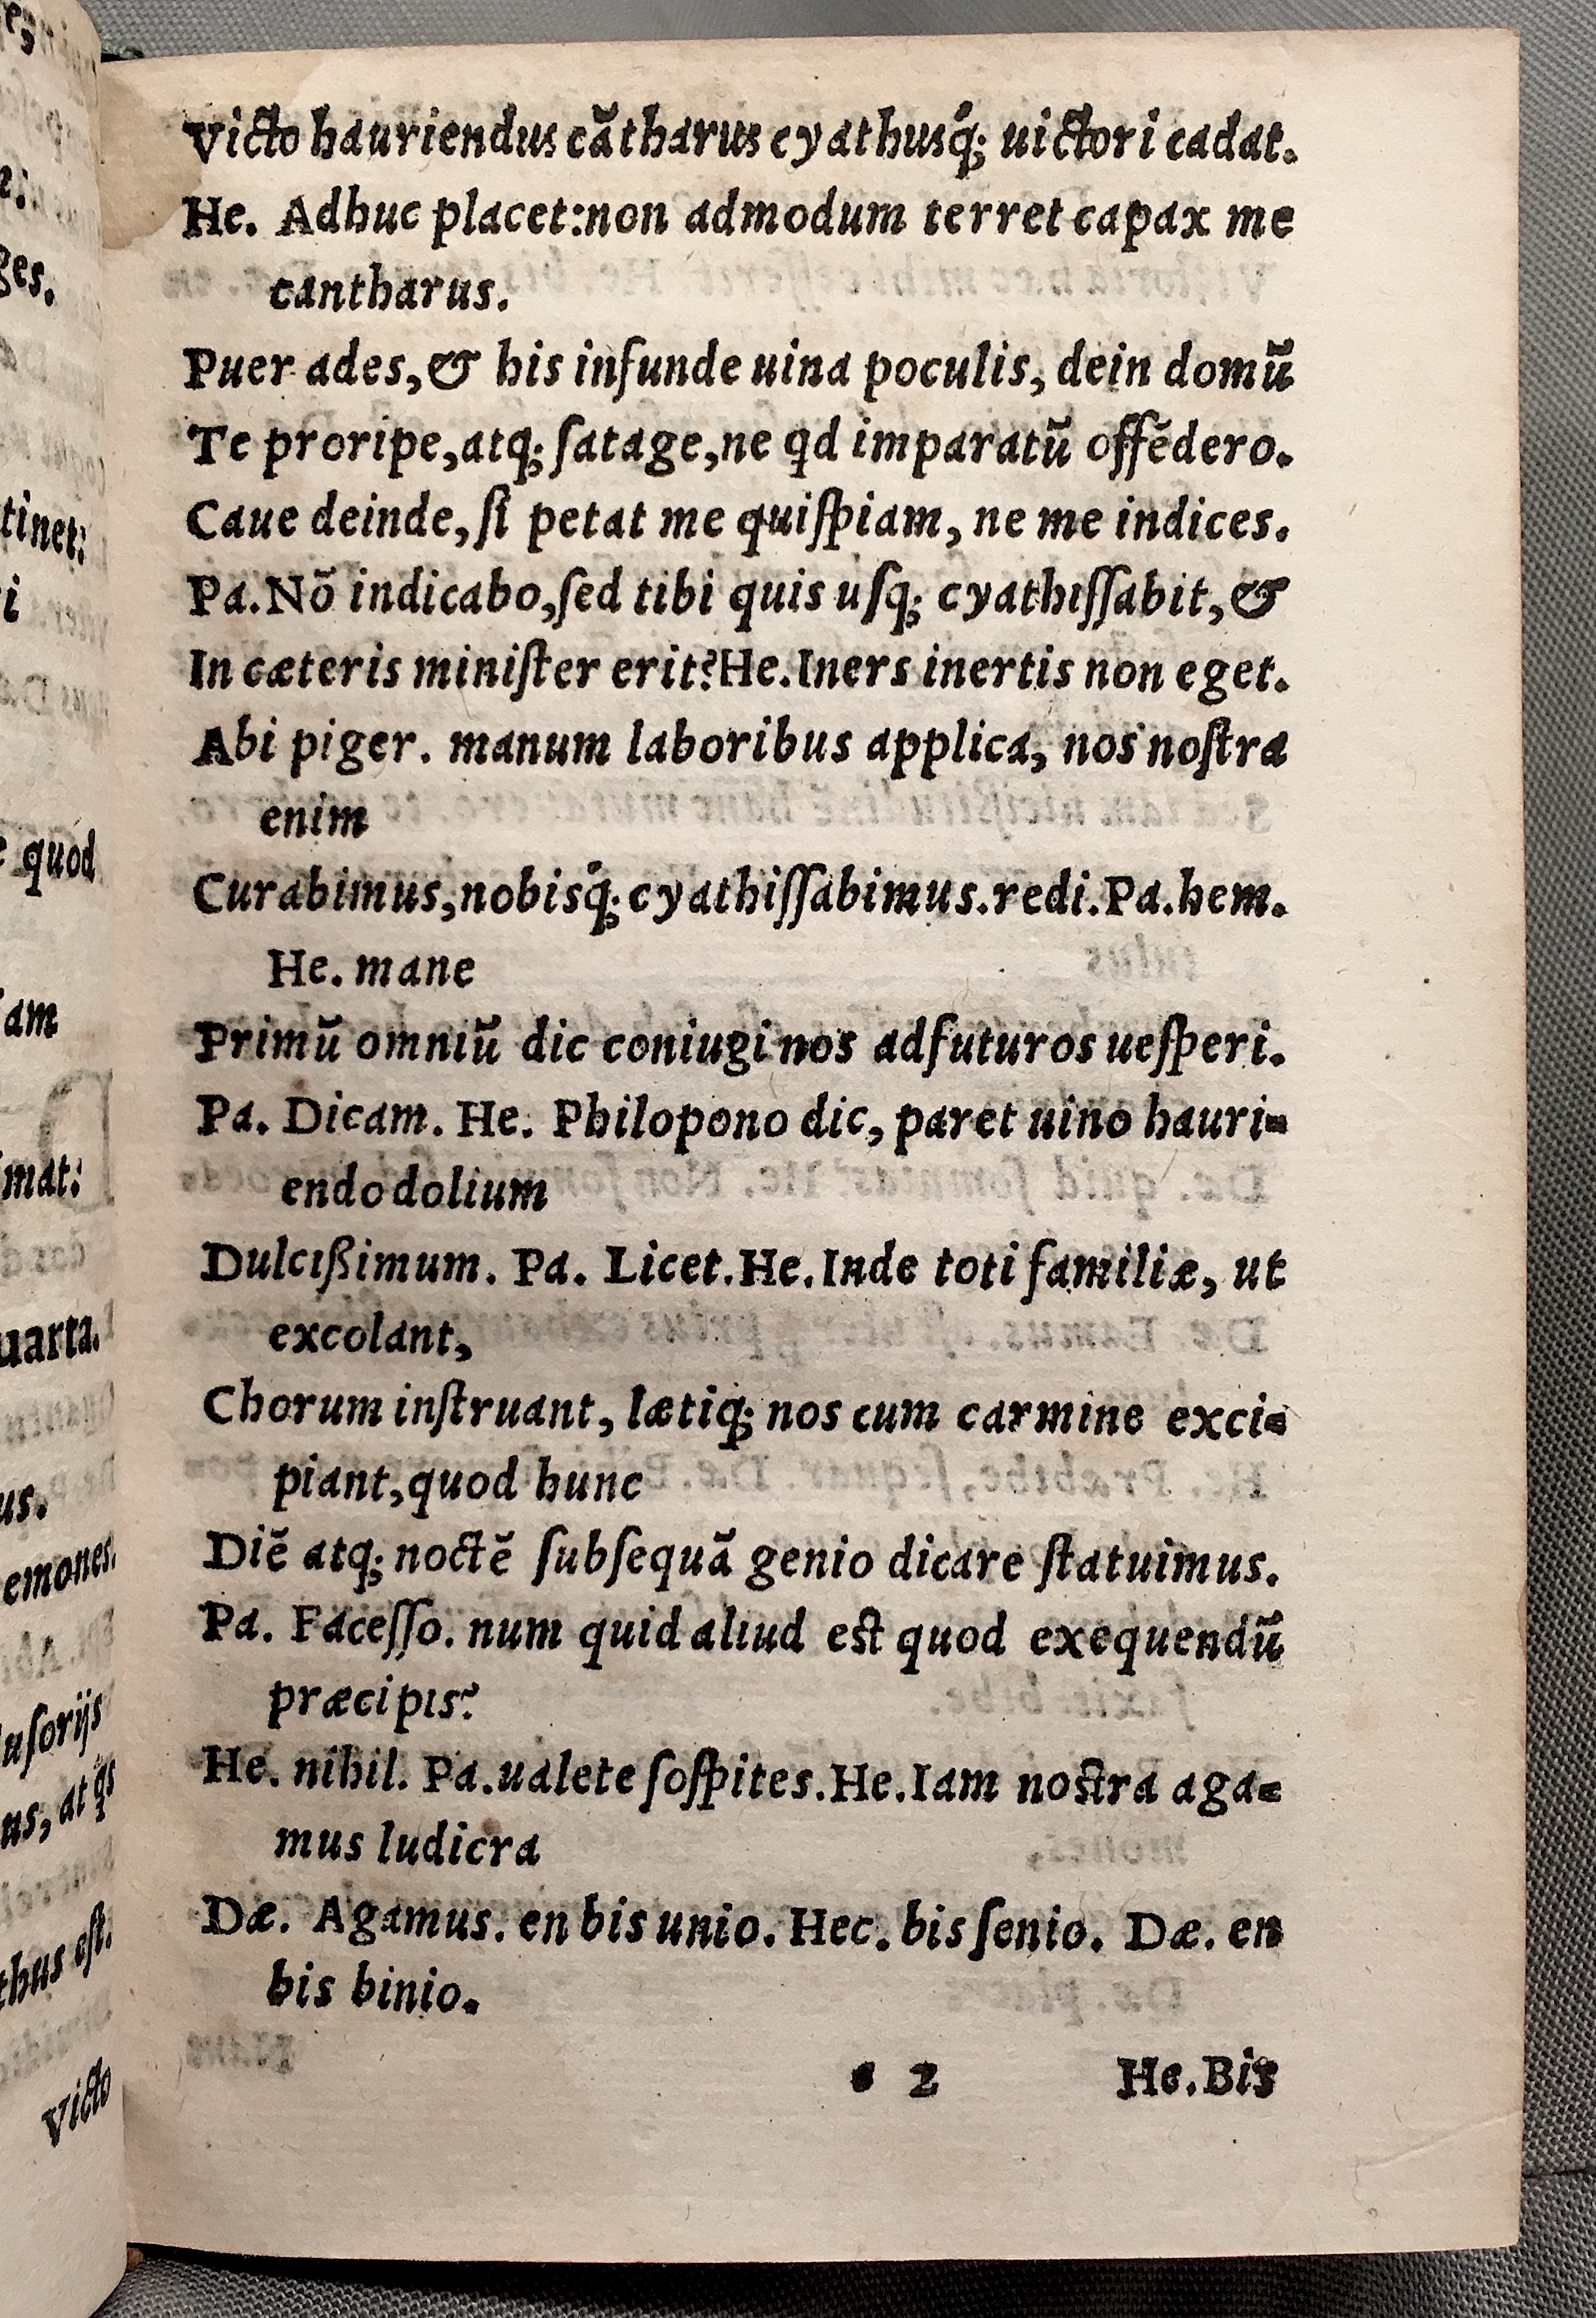 Victo hauriendus cãtharus cyathusq́; uictori cadat.
He. Adhuc placet:non admodum terret capax me
cantharus.
Puer ades,& his infunde uina poculis, dein domũ
Te proripe,atq; ſatage,ne qd imparatũ offẽdero.
Caue deinde,ſi petat me quiſpiam, ne me indices.
Pa.Nõ indicabo,ſed tibi quis uſq; cyathiſſabit,&
In cæteris miniſter erit?He.Iners inertis non eget.
Abi piger. manum laboribus applica, nos noſtra
enim
Curabimus,nobisq́; cyathiſſabimus.redi.Pa.hem.
He. mane
Primũ omniũ dic coniugi nos adfuturos ueſperi.
Pa. Dicam. He. Philopono dic, paret uino hauri=
endo dolium
Dulcißimum. Pa. Licet.He.Inde toti familiæ, ut
excolant,
Chorum inſtruant, lætiq; nos cum carmine exci=
piant,quod hunc
Diẽ atq; noctẽ ſubſequã genio dicare ſtatuimus.
Pa. Faceſſo. num quid aliud est quod exequendũ
præcipis?
He. nihil. Pa.ualete ſoſpites.He.Iam nostra aga=
mus ludicra
Dæ. Agamus. en bis unio. Hec. bis ſenio. Dæ. en
bis binio.
e 2 He.Bis
ges.
tinet:
quod
iam
mat:
uarta.
us.
emones.
uſorijs
us, at qs
thus eſt.
Victo